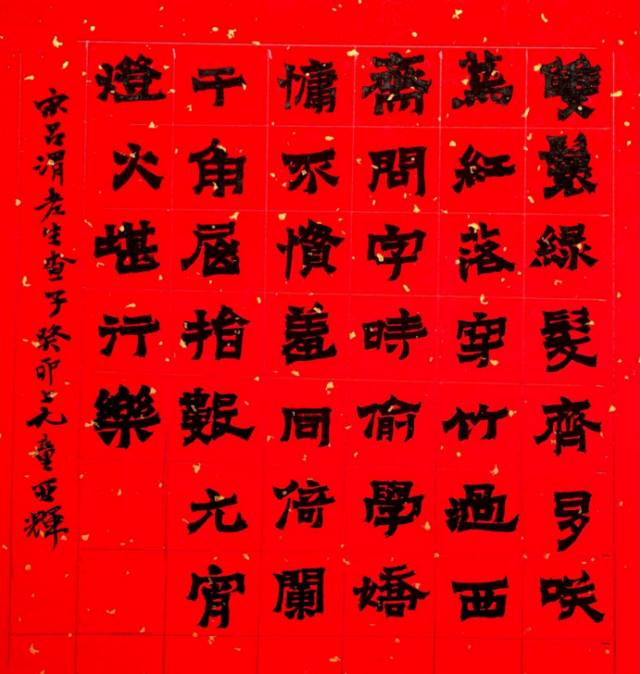 雙鬟綠髮齊多咲
蒸紅落穿竹過西
齋問字時偷學嬌
慵不慣羞同倚闌
干角屈指數元宵
燈火堪行樂
宋呂渭老生查子癸卯上元童亞輝